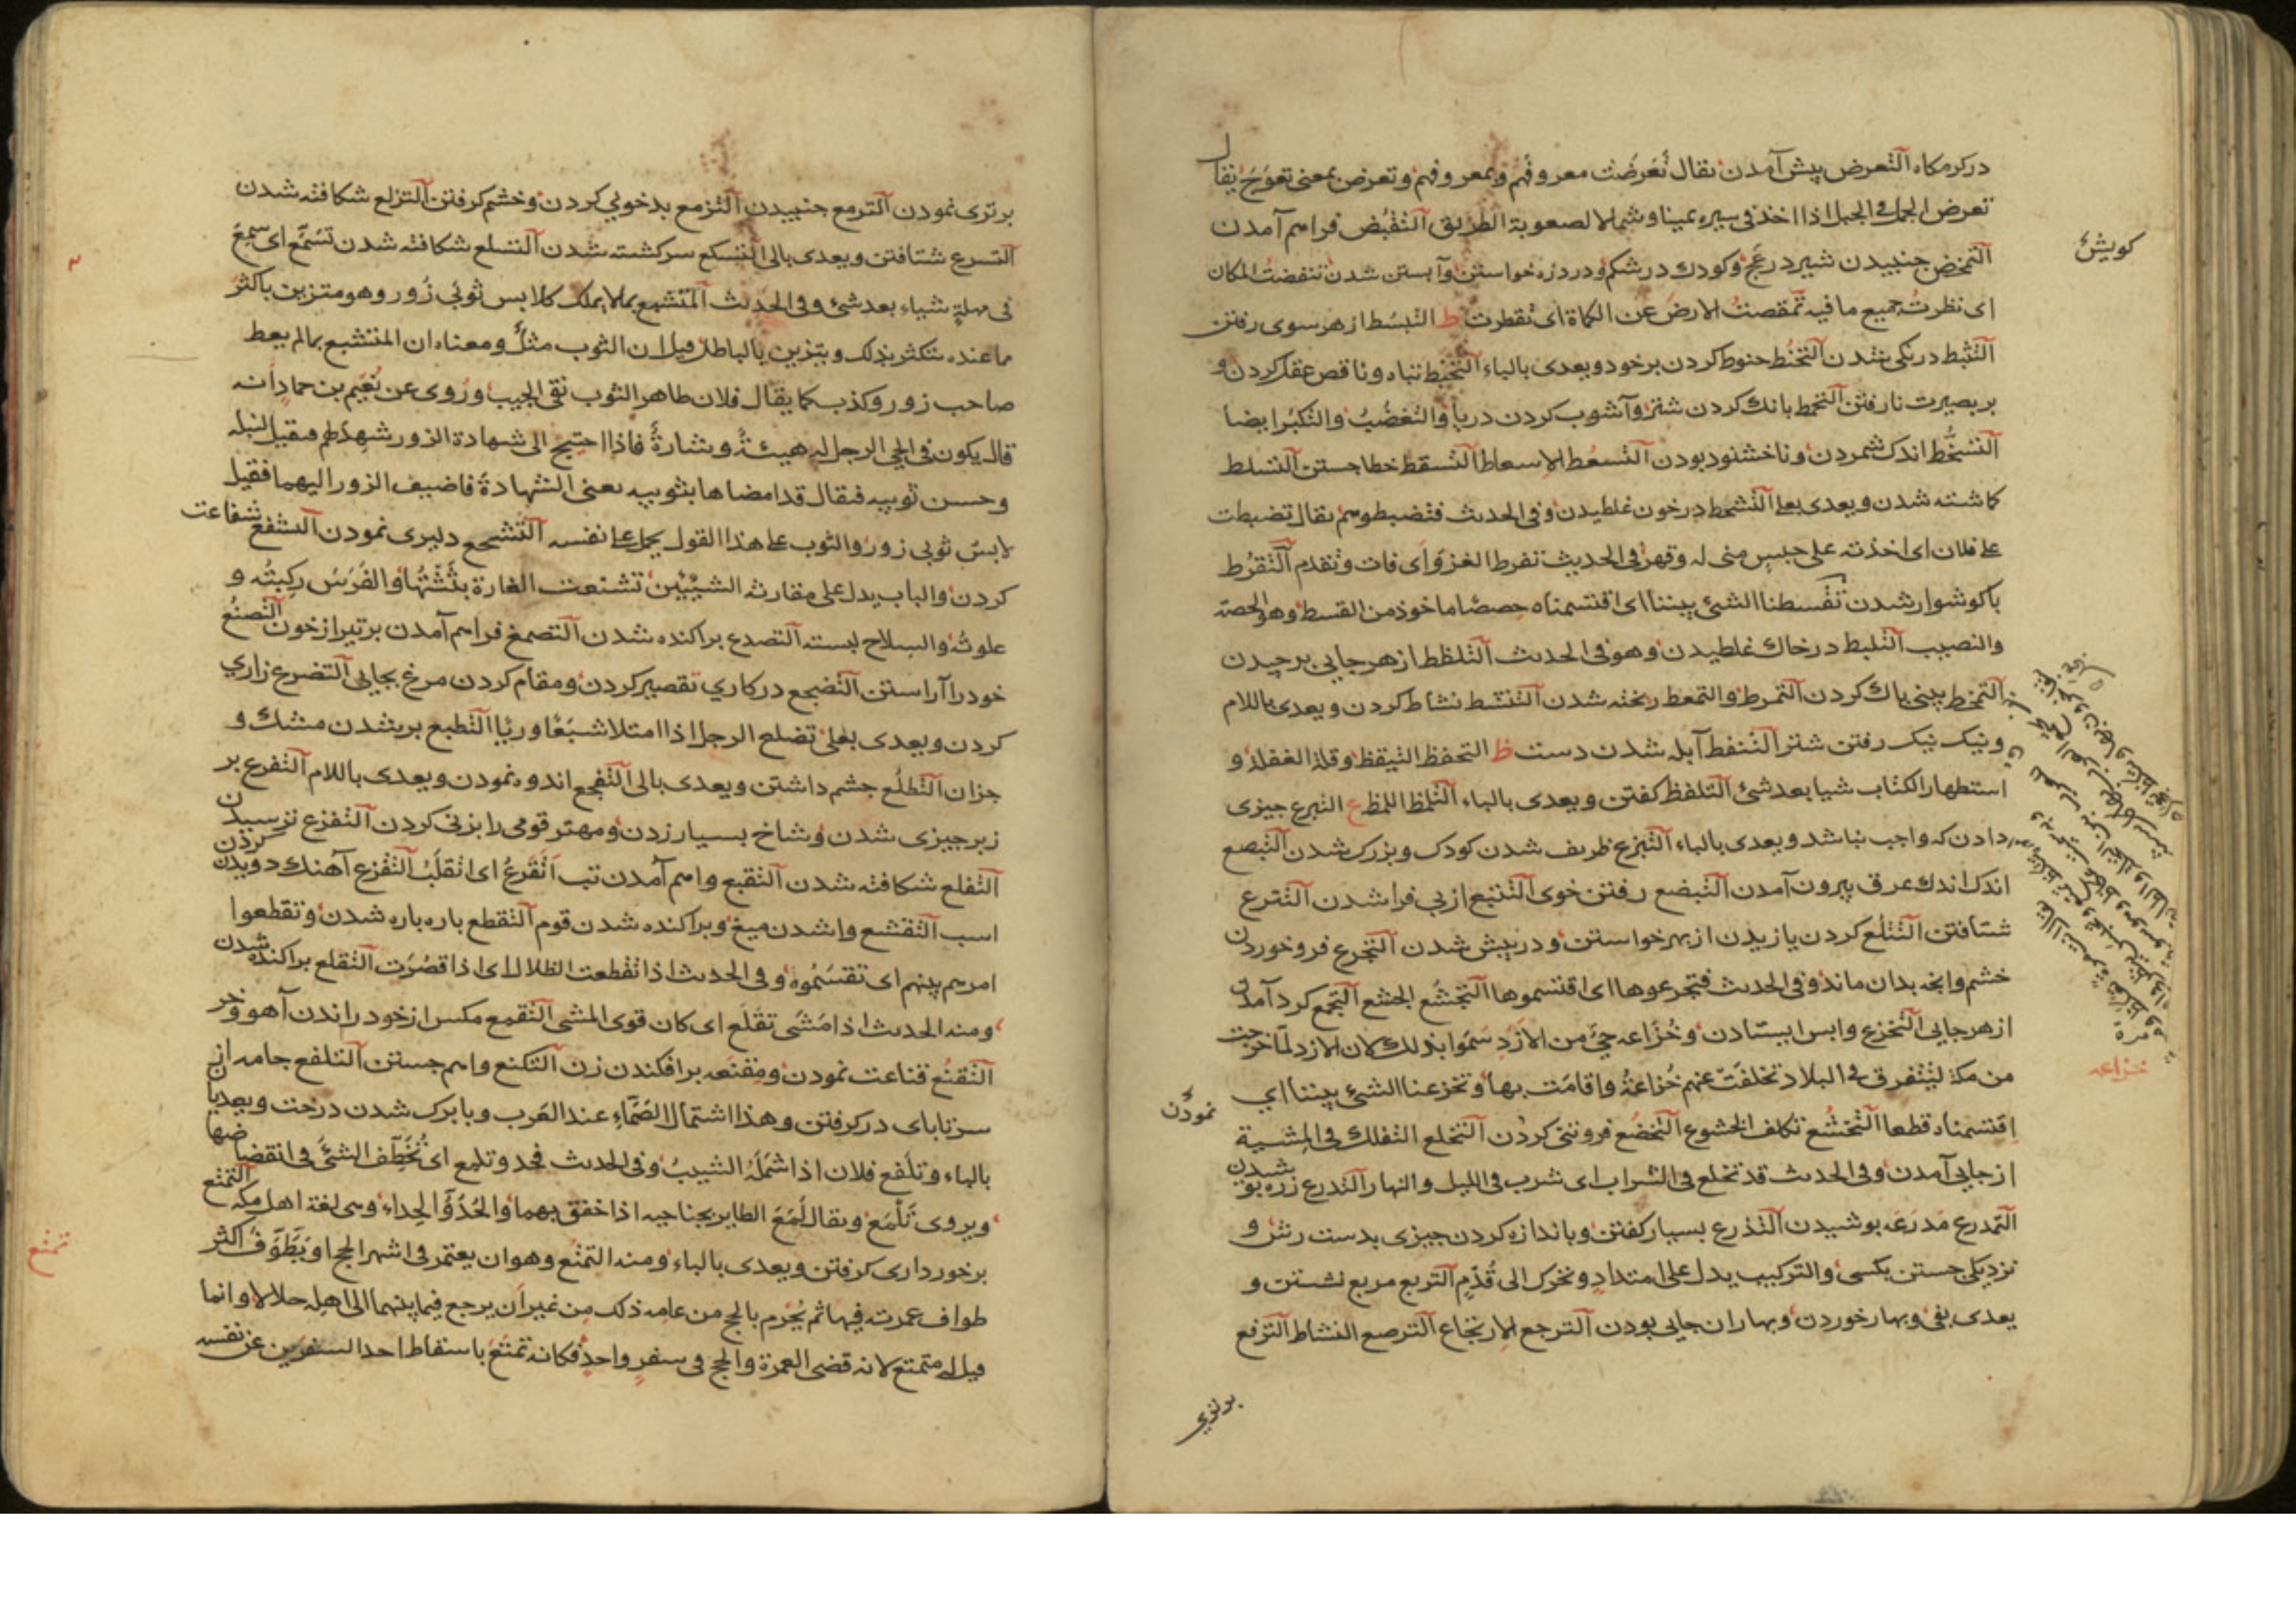 دركرمكاه التعرض پيش آمدن يقال تَعَرضْت معروفهم وبمعروفهم وتعرض بمعنى تعوّج يقال
تعرض الجمل فى الجبل اذا اخذ فى سيره يمينا وشمالا لصعوبة الطريق التقبّض فراهم آمدن
التمخض جنبيدن شير در عج وكودك در شكم ودرد زه خواستن وآبستن شدن تنفضت المكان
اى نظرت جميع ما فيه تمقصت الارض عن الكماة اى تفطرت ط التبسّط از هر سوى رفتن
التثبط درنكى شدن التحنّط حنوط كردن بر خود ويعدى بالباء التخبط تباه وناقص عقل كردن و
بر بصيرت نا رفتن التخمط بانك كردن شتر وآشوب كردن دريا والتغضّب والتكبّر ايضا
التسخّط اندك شمردن وناخشنود بودن التسعّط الاسعاط التسقط خطا جستن التسلط
كاشته شدن ويعدى بعلى التشحط در خون غلطيدن وفى الحديث فتضبطوهم يقال تضبطت
على فلان اى اخذته على حبس منى له وقهر فى الحديث تفرط الغزو اى فات وتقدم التقرّط
باكوشوار شدن تقسطنا الشئ بيننا اى اقتسمناه حصصا ماخوذ من القسط وهو الحصة
والنصيب التلبط در خاك غلطيدن وهو فى الحديث التلقط از هر جايى بر چيدن
التمخط بينى پاك كردن التمرط والتمعط ريخته شدن التنشط نشاط كردن ويعدى باللام
ونيك نيك رفتن شتر التنفط آبله شدن دست ظ التحفظ التيقظ وقلة الغفلة و
استظهار الكتاب شيا بعد شئ التلفظ كفتن ويعدى بالباء التلمظ اللمظ ع التبرع چيزى
دادن كه واجب نباشد ويعدى بالباء التبزع ظريف شدن كودك وبزرك شدن التبصع
اندك اندك عرق بيرون آمدن التبضع رفتن خوى التتبع از پى فرا شدن التترع
شتافتن التتلع كردن يازيدن از بهر خواستن ودر پيش شدن التجرع فرو خوردن
خشم وانچه بدان ماند وفى الحديث فتجزعوها اى اقتسموها التجشّع الجشع التجمع كرد آمدن
از هر جايى التخزع واپس ايستادن وخُزَاعه حيّ من الازْدِ سَمّوا بذلك لان الازد لمّا خرجت
من مكة لتتفرق فى البلاد تخلفت عنهم خُزاعةُ واقامَت بها وتخزعنا الشئ بيننا اي
اقتسمناه قطعا التخشّع تكلف الخشوع التخضّع فروتنى كردن التخلع التفلك فى المشية
از جايى آمدن وفى الحديث قد تخلع فى الشراب اى شرب فى الليل والنهار التدرع زره پوشيدن
التمدرع مَدرَعَه پوشيدن التذرع بسيار كفتن وباندازه كردن چيزى بدست رش و
نزديكى جستن بكسى والتركيب يدل على امتدادٍ وتحرك الى قُدّمٍ التربع مربع نشستن و
يعدى بفى وبهار خوردن وبهاران جايى بودن الترجع الارتجاع الترصع النشاط الترفع
كويش
خزاعه
نمودن
برترى
برترى نمودن الترمع جنبيدن التزمع بدخويى كردن وخشم كرفتن التزلع شكافته شدن
التسرع شتافتن ويعدى بالى التسكع سركشته شدن التسلع شكافته شدن تَسَمّع اى سمِعَ
فى مهلةٍ شياء بعد شئ وفى الحديث المتشبع بما لا يملك كلابس ثوبَى زُور وهو متزين باكثر
ما عنده يتكثر بذلك ويتزين بالباطل قيل ان الثوب مثلٌ ومعناه ان المتشبع بما لم يعط
صاحب زور وكذب كما يقال فلان طاهر الثوب نقى الجيب ورُوى عن نُعَيم بن حمادٍ انه
قال يكون فى الحى الرجل له هيئةٌ وشارةٌ فاذا احتيج الى شهادة الزور شهد لهم فيقبل لنبله
وحسن ثوبيه فيقال قد امضاها بثوبيه يعنى الشهادة فاضيف الزور اليهما فقيل
لابسُ ثوبى زور والثوب على هذا القول يحمل على نفسه التشجع دليرى نمودن التشفع شفاعت
كردن والباب يدل على مقارنة الشيئين تشنعت الغارة بثثتُها والفَرَسَ ركِبتُه و
علوتُه والسلاح لبسته التصدع پراكنده شدن التصمغ فراهم آمدن بر تير از خون التصنّع
خود را آراستن التضجع در كارى تقصير كردن ومقام كردن مرغ بجايى التضرع زاري
كردن ويعدى بعلى تضلع الرجل اذا امتلا شبَعًا وريًا التطبع پر شدن مشك و
جزان التطلع چشم داشتن ويعدى بالى التفجع اندوه نمودن ويعدى باللام التفرع بر
زبر چيزى شدن وشاخ بسيار زدن ومهتر قومى را بزنى كردن التفزع ترسيدن
التفلع شكافته شدن التقبع واهم آمدن تب اتَقَرعُ اى اتقلّبُ التقزع آهنك دويدن كردن
اسب التقشع وا شدن ميغ وپراكنده شدن قوم التقطع پاره پاره شدن وتقطعوا
امرهم بينهم اى تقسّمُوه وفى الحديث اذا تقطعت الظلال اى اذا قصُرَت التقلع پراكنده شدن
ومنه الحديث اذا مَشَى تقَلّع اى كان قوى المشى التقمع مكس از خود راندن آهو وخر
التقنّع قناعت نمودن ومِقنَعه بر افكندن زن التكنع واهم جستن التلفع جامه از
سر تا پاى در كرفتن وهذا اشتمال الصّمّاءِ عند العَرب وبا برك شدن درخت ويعديا
بالباء وتلَفع فلان اذا شَمَلَهُ الشيبُ وفى الحديث فحدو تلمع اى تُخَطِّف الشئَ فى انقضاضها
ويروى تَلْمَعُ ويقال لَمَعَ الطاير بجناحيه اذا خفق بهما والحُدُوُّ الحِداء وهى لغة اهل مكه التمتع
برخوردارى كرفتن ويعدى بالباء ومنه التمتّع وهو ان يعتمر فى اشهر الحج او يَطّوّف اكثر
طواف عمرته فيها ثم يُحرم بالحج من عامه ذلك من غير اَن يرجع فيما بينهما الى اهله حلالا وانما
قيل له متمتع لانه قضى العمرة والحج فى سفرٍ واحدٍ فكانه تمتّعَ باسقاط احد السفرَين عن نفسه
تمتع